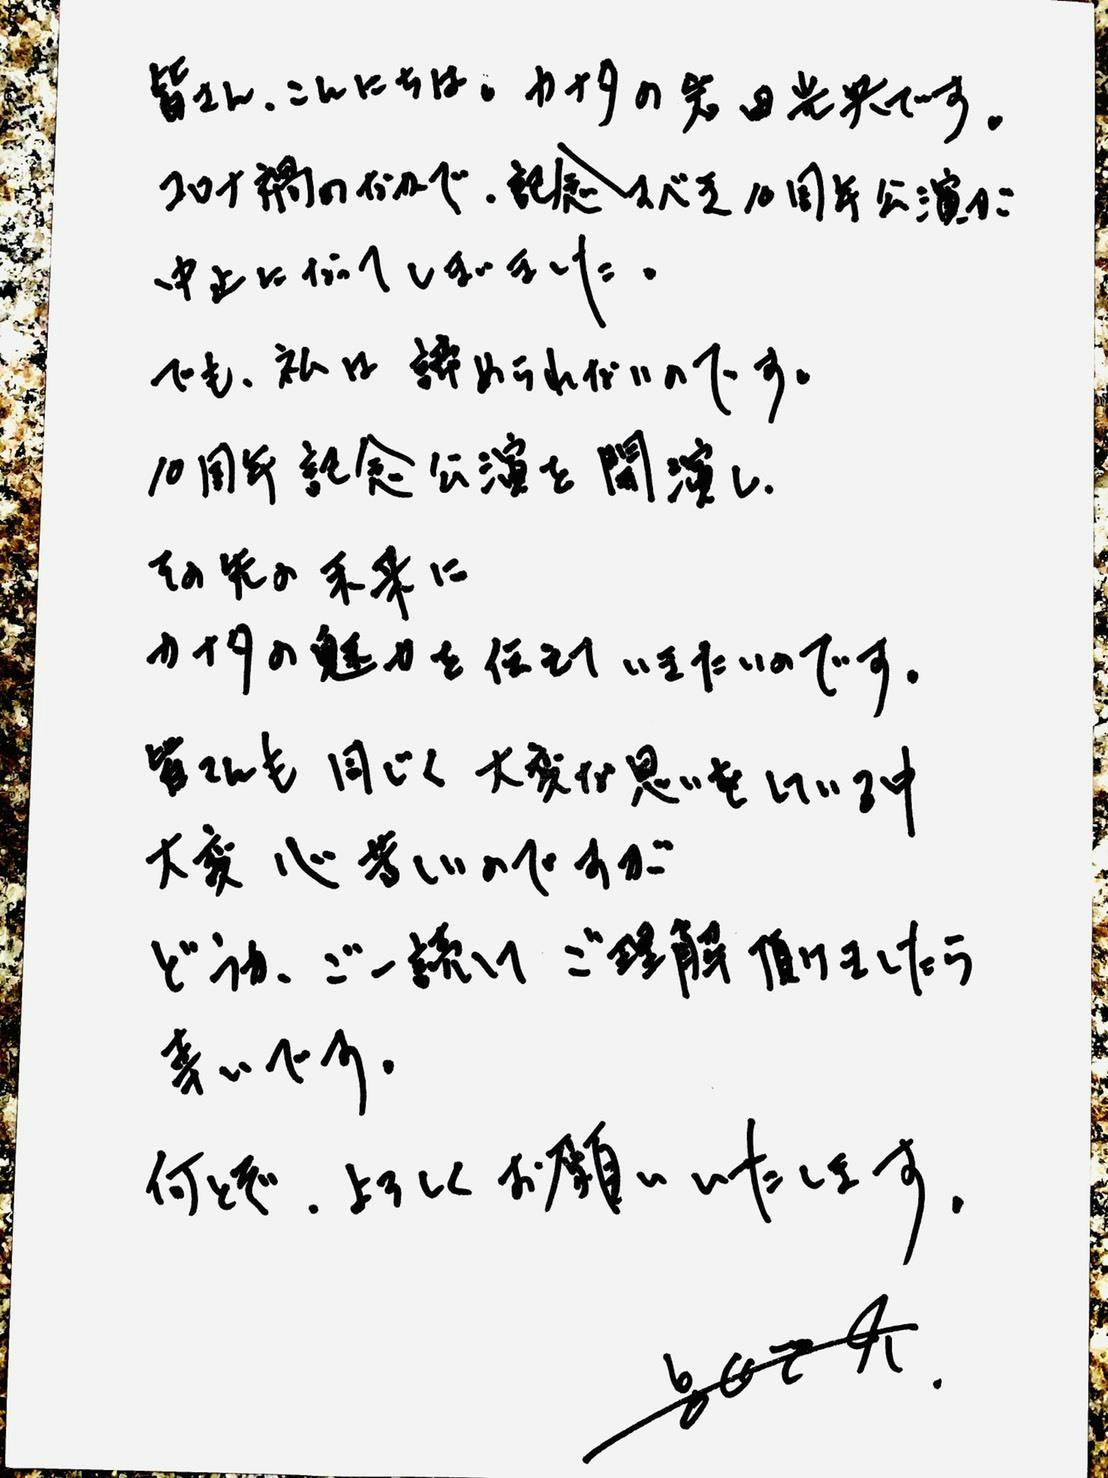 皆さん、こんにちは。カナタの先田光央です。
コロナ禍のなかで、記念すべき10周年公演が
中止になってしまいました。
でも、私は諦められないのです。
10周年記念公演を開演し、
その先の未来に
カナタの魅力を伝えていきたいのです。
皆さんも同じく大変な思いをしている中
大変心苦しいのですが
どうか、ご一読してご理解頂けましたら
幸いです。
何とぞ、よろしくお願いいたします。